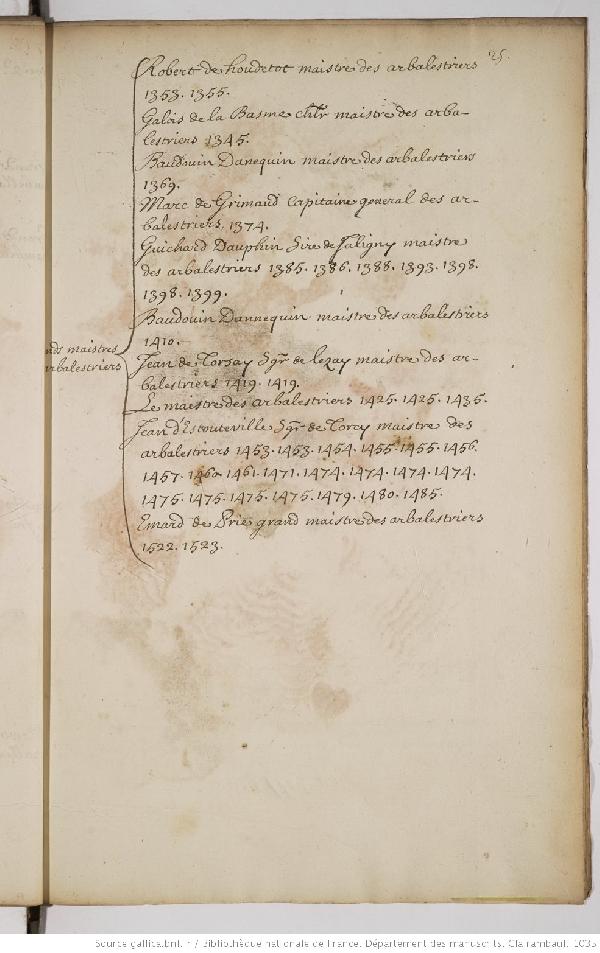 25.
Robert de houdetot maistre des arbalestriers
1353. 1355.
Galois de la Basme chlr maistre des arba-
lestriers 1345.
Baudouin Danequin maistre des arbalestriers
1369.
Marc de Grimaud Capitaine general des ar-
balestriers. 1374.
Guichard Dauphin Sire de Jaligny maistre
des arbalestriers 1385. 1386. 1388. 1393. 1398.
1398. 1399.
Baudouin Dannequin maistre des arbalestriers
1410.
nds maistres
arbalestriers
Jean de Torsay Sgr de lezay maistre des ar-
balestriers 1419. 1419.
Le maistre des arbalestriers 1425. 1425. 1435.
Jean d'Estouteville Sgr de Torcy maistre des
arbalestriers 1453. 1453. 1454. 1455. 1455. 1456.
1457. 1460. 1461. 1471. 1474. 1474. 1474. 1474.
1475. 1475. 1475. 1475. 1479. 1480. 1485.
Emard de Prie grand maistre des arbalestriers
1522. 1523.
Source gallica.bnf.fr / Bibliothèque nationale de France. Département des manuscrits. Clairambault 1035